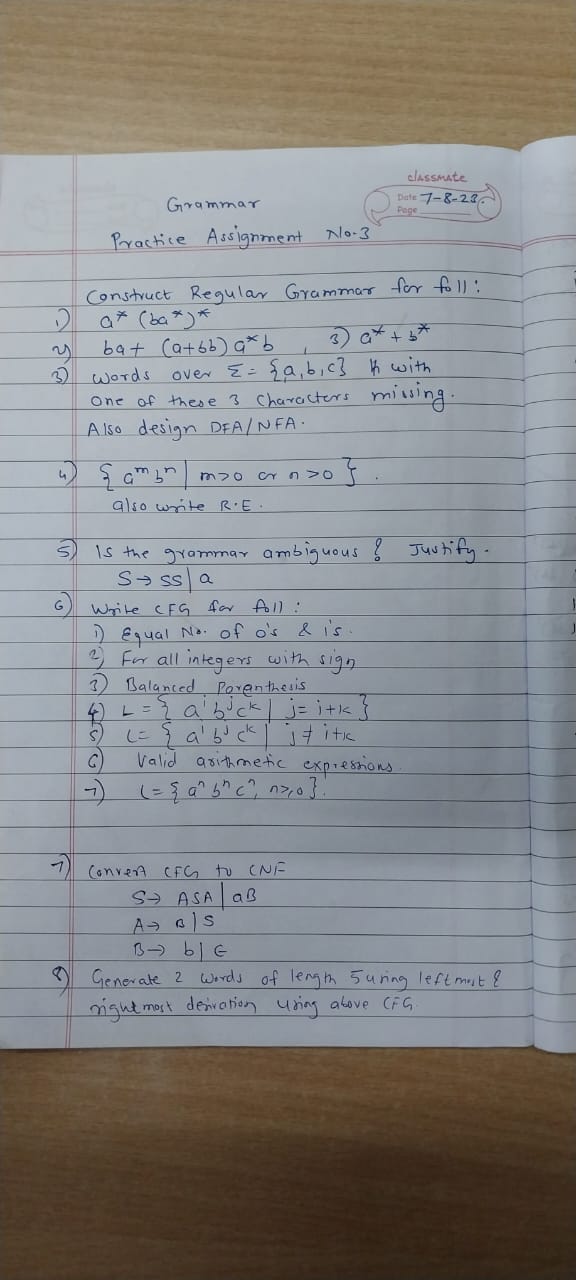 classmate
Date 7-8-23
Page
Grammar
Practice Assignment No.3
Construct Regular Grammar for foll:
1) a* (ba*)*
2) ba + (a+bb) a*b , 3) a* + b*
3) words over Σ = {a,b,c} with
one of these 3 characters missing.
Also design DFA/NFA.
4) { a^m b^n | m>0 or n>0 } .
also write R.E.
5) Is the grammar ambiguous? Justify.
S→ SS | a
6) Write CFG for foll:
1) Equal No. of 0's & 1's.
2) For all integers with sign
3) Balanced Parenthesis
4) L = { a^i b^j c^k | j = i+k }
5) L = { a^i b^j c^k | j ≠ i+k
6) Valid arithmetic expressions.
7) L = { a^n b^n c^n, n>,0 }.
7) Convert CFG to CNF
S→ ASA | aB
A→ B | S
B→ b | ε
8) Generate 2 words of length 5 using leftmost &
rightmost derivation using above CFG.